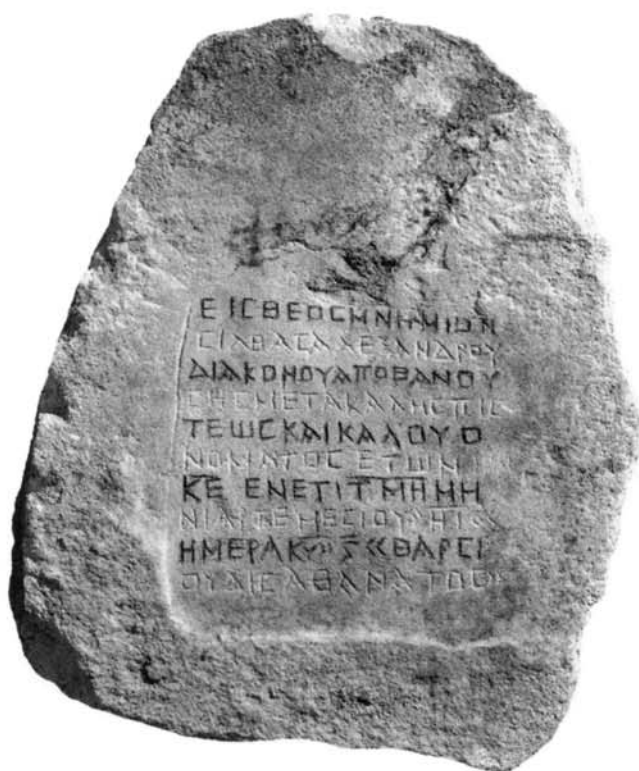 ΕΙCΘΕΟCΜΝΗΜΙΟΝ
CΙΛΘΑCΑΛΕΞΑΝΔΡΟΥ
ΔΙΑΚΟΝΟΥΑΠΟΘΑΝΟΥ
CΗCΜΕΤΑΚΑΛΗCΠΙC
ΤΕΩCΚΑΙΚΑΛΟΥΟ
ΝΟΜΑΤΟCΕΤΩΝ
ΚΕ ΕΝΕΤΙΤΜΗΜΗ
ΝΙΑΡΤΕΜΕCΙΟΥ
ΗΜΕΡΑ ΘΑΡCΙ
ΟΥΔΙCΑΘΑΝΑΤΟC